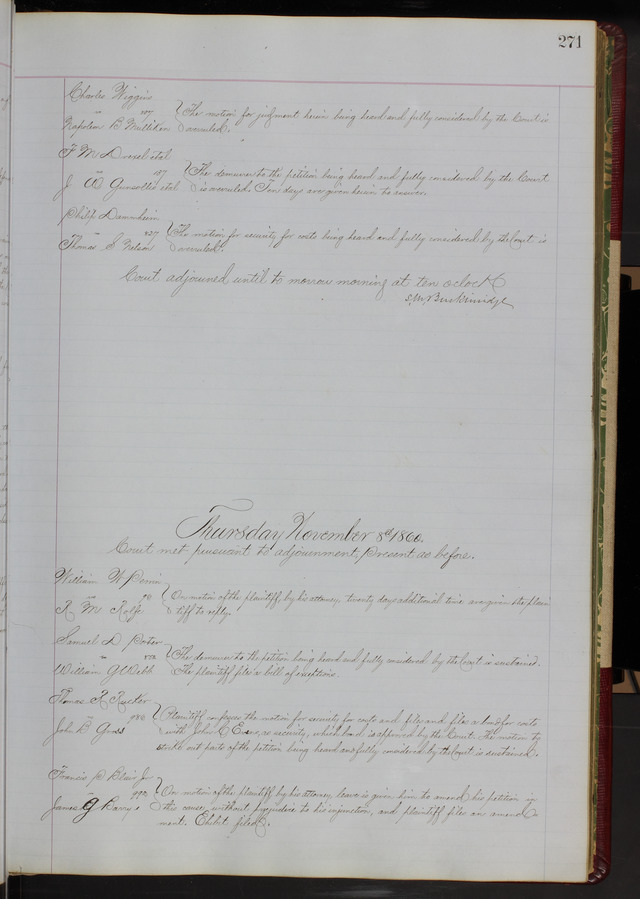 271
Charles Wiggins
vs
Napoleon B Milliken
The motion for judgment herein being heard and fully considered by the Court is
overruled.
F M Drexel etal
vs
J W etal
The demurrer to the petition being heard and fully considered by the Court
is overruled. Ten days are given herein to answer.
Philip Dannheim
vs
Thomas S Nelson
The motion for security for costs being heard and fully considered by the Court is
overruled.
Court adjourned until to morrow morning at ten oclock
S. M. Breckinridge
Thursday November 8th 1860.
Court met pursuant to adjournment, present as before.
William W
vs
R M Rolfe
On motion of the plaintiff, by his attorney, twenty days additional time are given the plain
tiff to reply.
Samuel D Porter
vs
William G Webb
The demurrer to the petition being heard and fully considered by the Court is sustained.
The plaintiff files a bill of exceptions.
Thomas R Rucker
vs 980
John B
Plaintiff confesses the motion for security for costs and files a bond for costs
with John C Evans, as security, which bond is approved by the Court. The motion to
strike out parts of the petition being heard and fully considered by the Court is sustained.
Francis P Blair Jr
vs 990
James G Barry
On motion of the plaintiff by his attorney leave is given him to amend his petition in
this cause, without prejudice to his injunction, and plaintiff files an amend
ment. Exhibit filed.